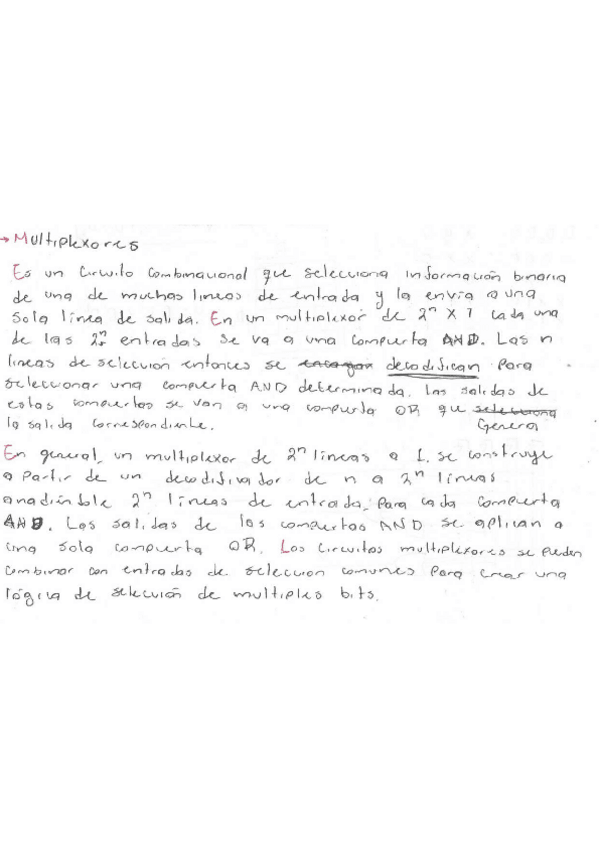 → Multiplexores
Es un Circuito Combinacional que selecciona información binaria
de una de muchas lineas de entrada y la envía a una
Sola línea de salida. En un multiplexor de 2ⁿ X 1 cada una
de las 2ⁿ entradas se va a una compuerta AND. Las n
lineas de selección entonces se encargan decodifican para
seleccionar una compuerta AND determinada. Las salidas de
estas compuertas se van a una compuerta OR que selecciona
Genera
la salida correspondiente.
En general, un multiplexor de 2ⁿ lineas a 1. se construye
a partir de un decodificador de n a 2ⁿ líneas
anadiéndole 2ⁿ líneas de entrada, Para cada compuerta
AND. Las salidas de las compuertas AND se aplican a
una sola compuerta OR. Los Circuitos multiplexores se pueden
Combinar con entradas de selección comunes Para crear una
lógica de selección de multiples bits.